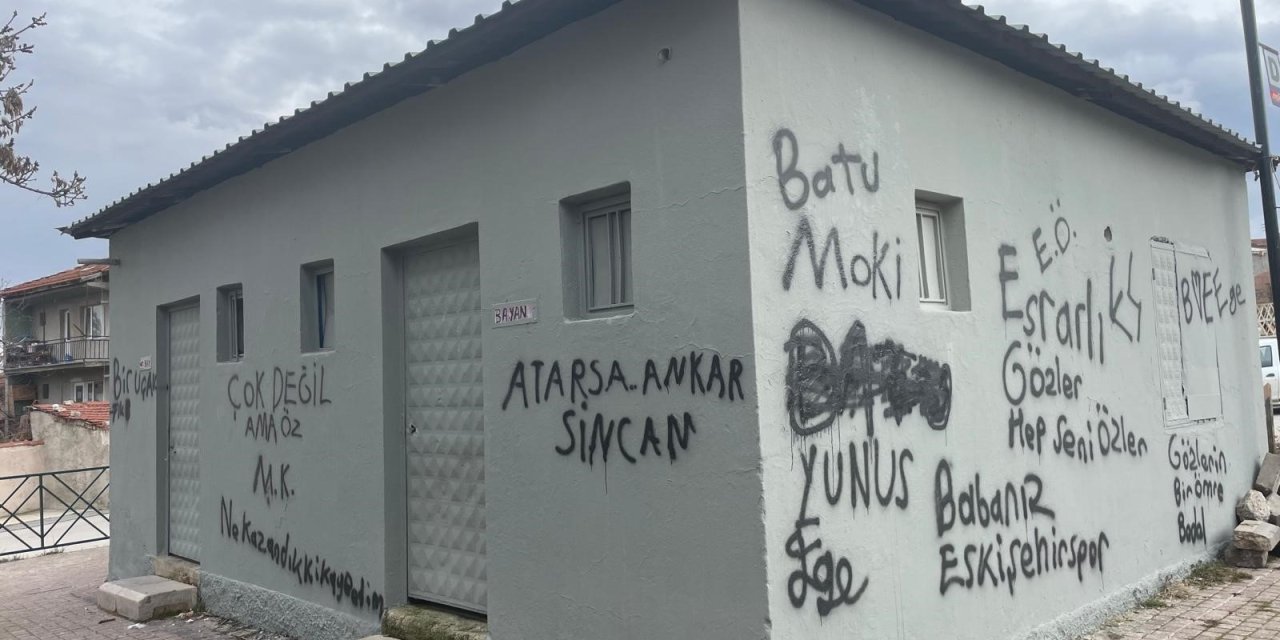 Bir uçak
ÇOK DEĞİL
AMA ÖZ
M.K.
Ne kazandık ki kaybedim
BAYAN
ATARSA.. ANKAR
SİNCAN
Batu
Moki
YUNUS
Ege
E.Ö.
Esrarlı
Gözler
Hep Seni Özler
Babanız
Eskişehirspor
BMEE
Ege
Gözlerin
Bir Ömre
Bedel